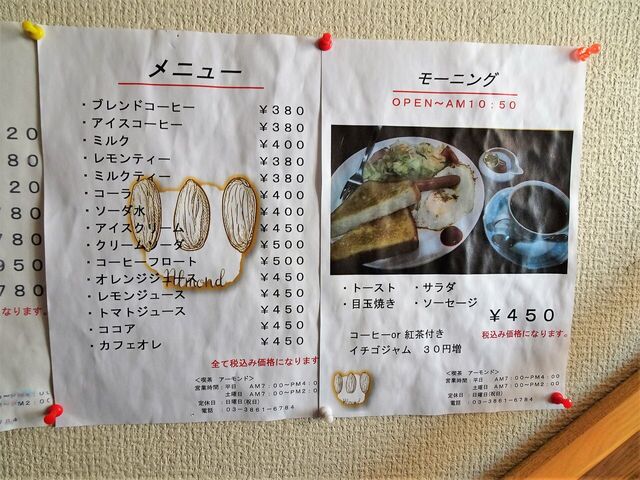 ２０
８０
２０
７８０
７８０
９５０
７８０
なります。
メニュー
・ブレンドコーヒー ￥３８０
・アイスコーヒー ￥３８０
・ミルク ￥４００
・レモンティー ￥３８０
・ミルクティー ￥３８０
・コーラ ￥４００
・ソーダ水 ￥４００
・アイスクリーム ￥４５０
・クリームソーダ ￥５００
・コーヒーフロート ￥５００
・オレンジジュース ￥４５０
・レモンジュース ￥４５０
・トマトジュース ￥４５０
・ココア ￥４５０
・カフェオレ ￥４５０
Almond
全て税込み価格になります
＜喫茶 アーモンド＞
営業時間：平日 ＡＭ７：００～ＰＭ４：０
土曜日 ＡＭ７：００～ＰＭ２：０
定休日：日曜日(祝日)
電話：０３－３８６１－６７８４
モーニング
ＯＰＥＮ～ＡＭ１０：５０
・トースト ・サラダ
・目玉焼き ・ソーセージ
￥４５０
税込み価格になります。
コーヒーor 紅茶付き
イチゴジャム ３０円増
＜喫茶 アーモンド＞
営業時間：平日 ＡＭ７：００～ＰＭ４：００
土曜日 ＡＭ７：００～ＰＭ２：００
定休日：日曜日(祝日)
電話：０３－３８６１－６７８４